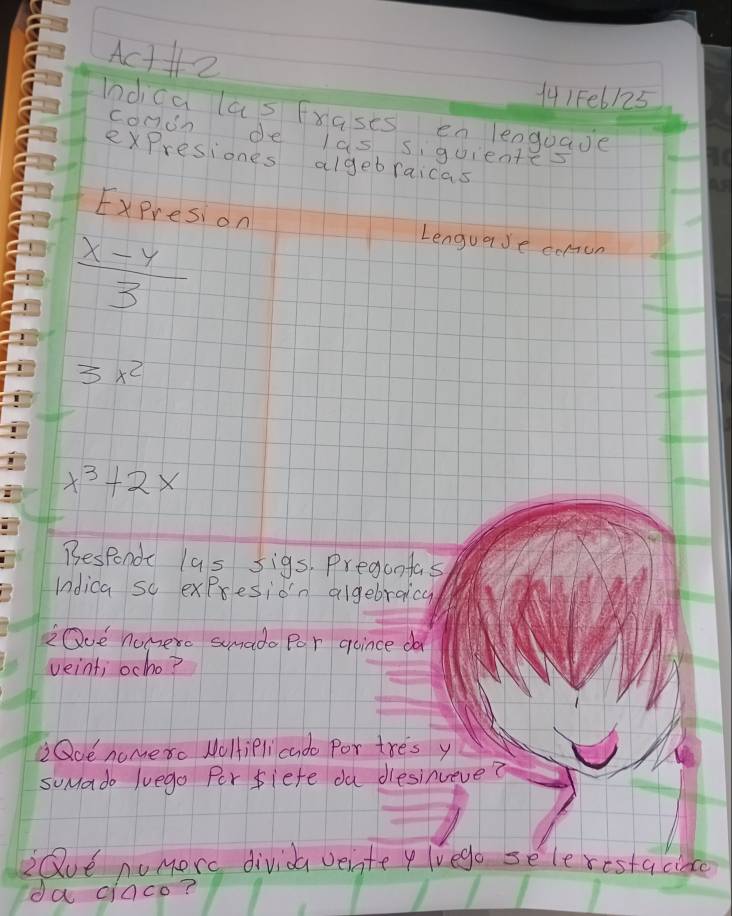 Act#2
14/Feb/25
Indica las frases en lenguaje
común de las siguientes
expresiones algebraicas
Expresion Lenguaje comun
x-y
3
3x²
x³+2x
Responde las sigs. Preguntas
Indica su expresión algebraica
¿Qué numero sumado Por quince da
veinti ocho?
¿Qué numero Multiplicado Por tres y
sumado luego Por siete da diesinueve?
¿Qué numero divida veinte y luego se le resta cinco
da cinco?